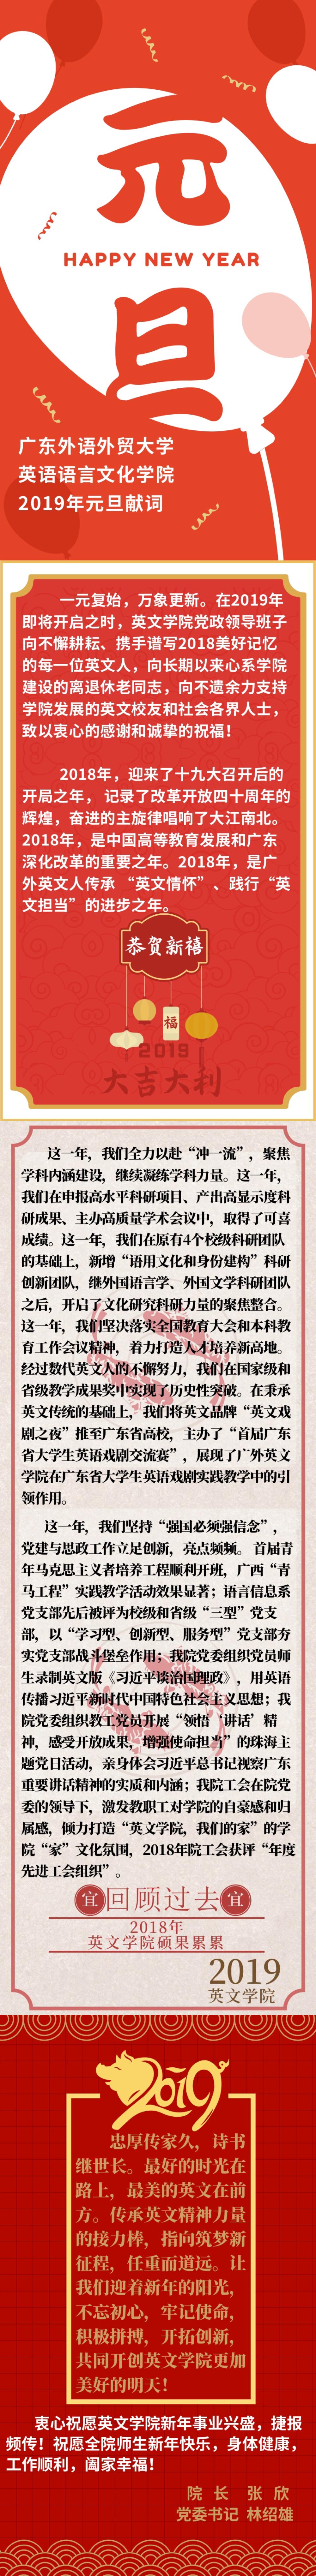 元
HAPPY NEW YEAR
旦
广东外语外贸大学
英语语言文化学院
2019年元旦献词
一元复始，万象更新。在2019年
即将开启之时，英文学院党政领导班子
向不懈耕耘、携手谱写2018美好记忆
的每一位英文人，向长期以来心系学院
建设的离退休老同志，向不遗余力支持
学院发展的英文校友和社会各界人士，
致以衷心的感谢和诚挚的祝福！
2018年，迎来了十九大召开后的
开局之年， 记录了改革开放四十周年的
辉煌，奋进的主旋律唱响了大江南北。
2018年，是中国高等教育发展和广东
深化改革的重要之年。2018年，是广
外英文人传承 “英文情怀” 、践行“英
文担当” 的进步之年。
恭贺新禧
福
2019
大吉大利
这一年，我们全力以赴“冲一流”，聚焦
学科内涵建设，继续凝练学科力量。这一年，
我们在申报高水平科研项目、产出高显示度科
研成果、主办高质量学术会议中，取得了可喜
成绩。这一年，我们在原有4个校级科研团队
的基础上，新增“语用文化和身份建构”科研
创新团队，继外国语言学、外国文学科研团队
之后，开启了文化研究科研力量的聚焦整合。
这一年，我们坚决落实全国教育大会和本科教
育工作会议精神，着力打造人才培养新高地。
经过数代英文人的不懈努力，我们在国家级和
省级教学成果奖中实现了历史性突破。在秉承
英文传统的基础上，我们将英文品牌“英文戏
剧之夜”推至广东省高校，主办了“首届广东
省大学生英语戏剧交流赛”，展现了广外英文
学院在广东省大学生英语戏剧实践教学中的引
领作用。
这一年，我们坚持“强国必须强信念”，
党建与思政工作立足创新，亮点频频。首届青
年马克思主义者培养工程顺利开班，广西“青
马工程”实践教学活动效果显著；语言信息系
党支部先后被评为校级和省级“三型”党支
部，以“学习型、创新型、服务型”党支部夯
实党支部战斗堡垒作用；我院党委组织党员师
生录制英文版《习近平谈治国理政》，用英语
传播习近平新时代中国特色社会主义思想；我
院党委组织教工党员开展“领悟‘讲话’精
神，感受开放成果，增强使命担当”的珠海主
题党日活动，亲身体会习近平总书记视察广东
重要讲话精神的实质和内涵；我院工会在院党
委的领导下，激发教职工对学院的自豪感和归
属感，倾力打造“英文学院，我们的家”的学
院“家”文化氛围，2018年院工会获评“年度
先进工会组织”。
宜 回顾过去 宜
2018年
英文学院硕果累累
2019
英文学院
2019
忠厚传家久，诗书
继世长。最好的时光在
路上，最美的英文在前
方。传承英文精神力量
的接力棒，指向筑梦新
征程，任重而道远。让
我们迎着新年的阳光，
不忘初心，牢记使命，
积极拼搏，开拓创新，
共同开创英文学院更加
美好的明天！
衷心祝愿英文学院新年事业兴盛，捷报
频传！祝愿全院师生新年快乐，身体健康，
工作顺利，阖家幸福！
院 长 张 欣
党委书记 林绍雄